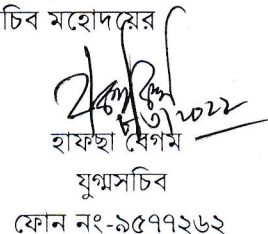 চিব মহোদয়ের
২০২২
হাফছা বেগম
যুগ্মসচিব
ফোন নং-৯৫৭৭২৬২